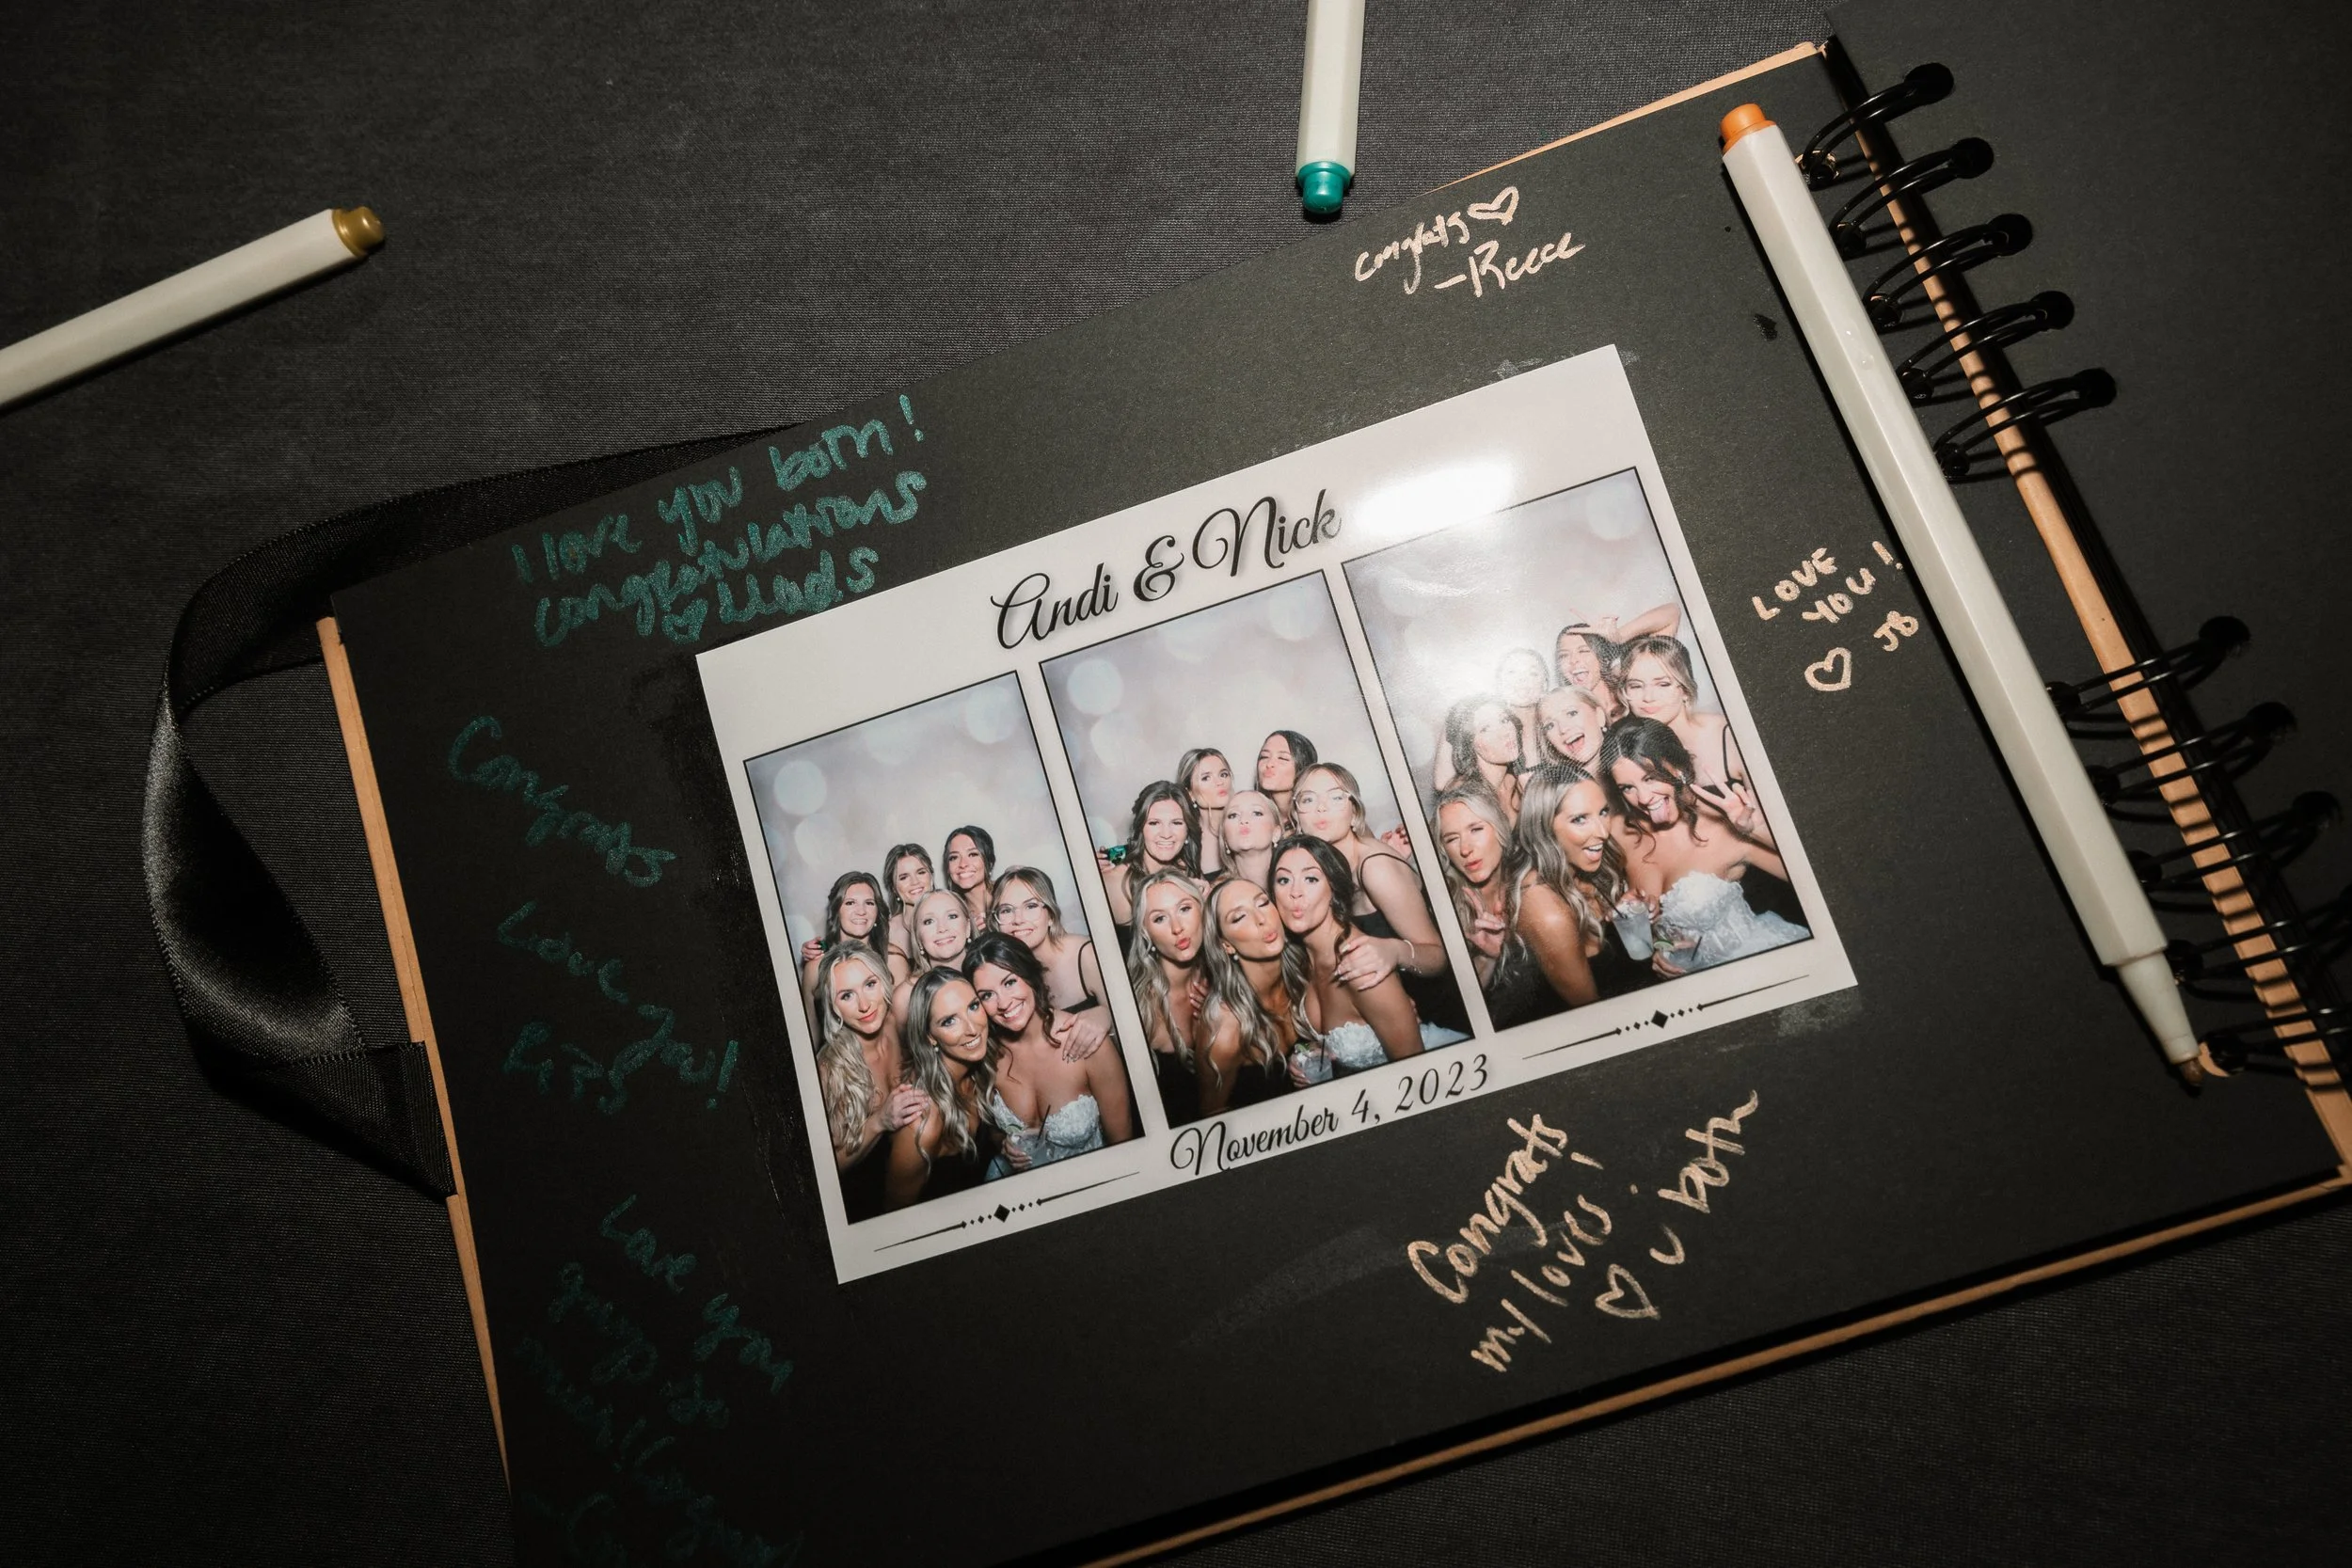 congrats ♡
-Reece
I love you both!
congratulations
♡
Andi & Nick
LOVE
YOU!
♡ JB
Congrats
Love You!
November 4, 2023
Congrats
my loves!
♡ u both
Love you
so
much